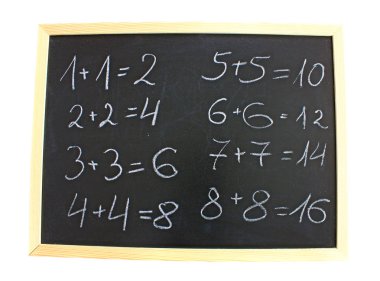 1+1=2
2+2=4
3+3=6
4+4=8
5+5=10
6+6=12
7+7=14
8+8=16